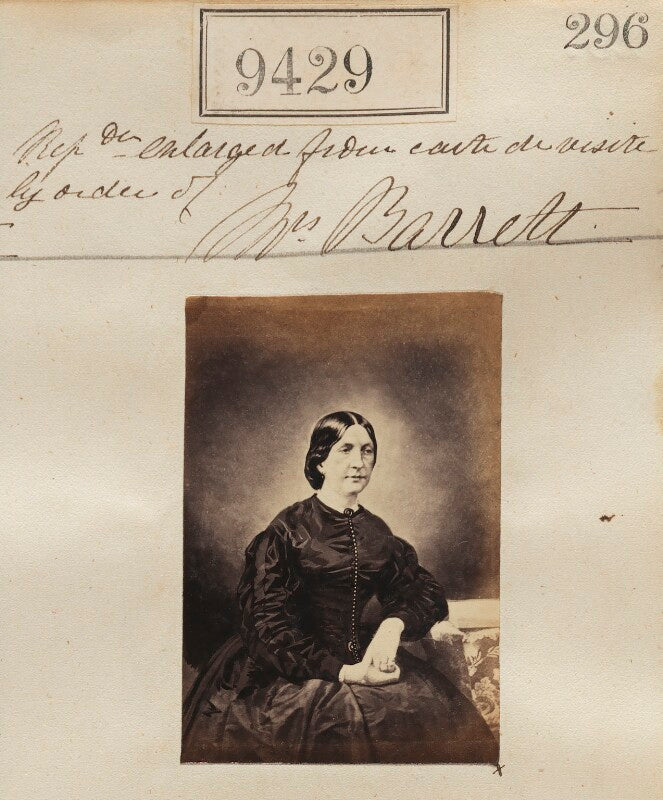 9429
296
Rep de enlarged from carte de visite
by order of
Mrs Barrett
x